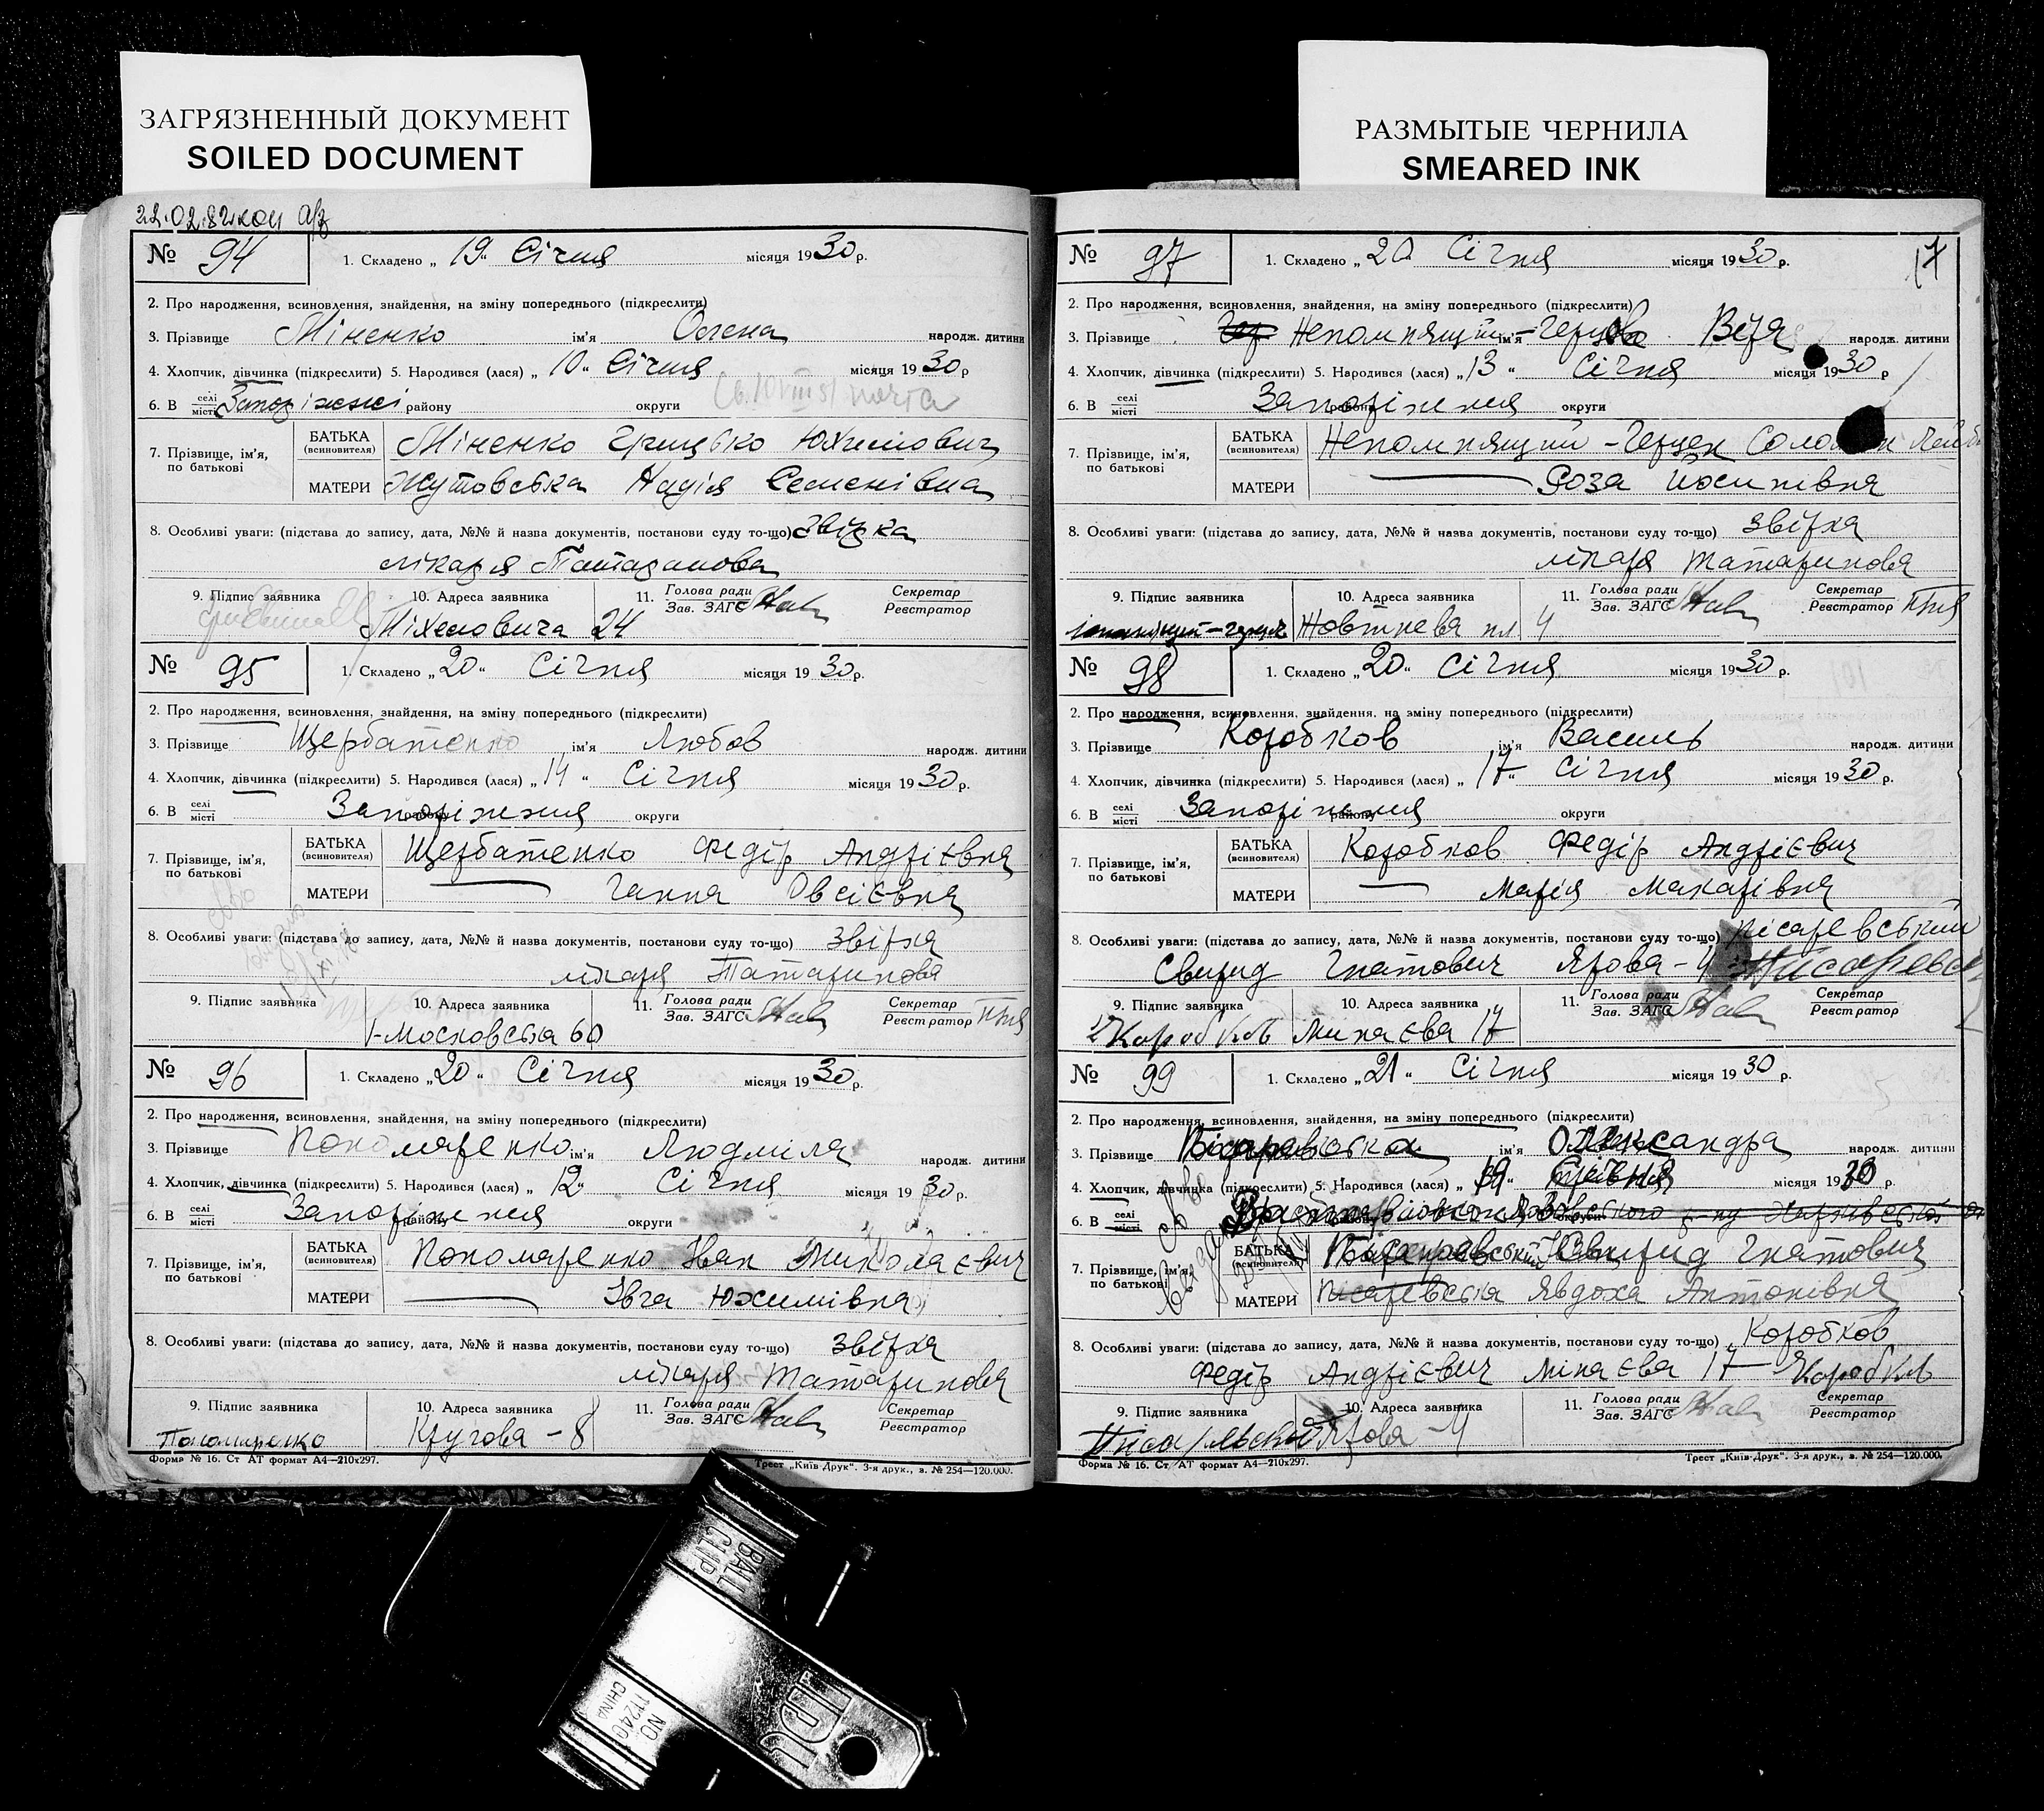 ЗАГРЯЗНЕННЫЙ ДОКУМЕНТ
SOILED DOCUMENT
РАЗМЫТЫЕ ЧЕРНИЛА
SMEARED INK
№ 94 1. Складено „19“ Січня місяця 1930 р.
2. Про народження, всиновлення, знайдення, на зміну попереднього (підкреслити)
3. Прізвище Міненко ім'я народж. дитини
4. Хлопчик, дівчинка (підкреслити) 5. Народився (лася) „10“ Січня місяця 1930 р
6. В селі місті Запоріжжі району округи
7. Прізвище, ім'я, по батькові БАТЬКА (всиновителя) Міненко Грицько Юхимович
МАТЕРИ Жутовська Надія Семенівна
8. Особливі уваги: (підстава до запису, дата, №№ й назва документів, постанови суду то-що) Звідка
лікаря
9. Підпис заявника 10. Адреса заявника 11. Голова ради Зав. ЗАГС Секретар Реєстратор
Міхеловича 24
№ 95 1. Складено „20“ Січня місяця 1930 р.
2. Про народження, всиновлення, знайдення, на зміну попереднього (підкреслити)
3. Прізвище Щербатенко ім'я Любов народж. дитини
4. Хлопчик, дівчинка (підкреслити) 5. Народився (лася) „14“ Січня місяця 1930 р.
6. В селі місті Запоріжжя району округи
7. Прізвище, ім'я, по батькові БАТЬКА (всиновителя) Щербатенко Федір Андрієвна
МАТЕРИ — Ганна Овсієвна
8. Особливі уваги: (підстава до запису, дата, №№ й назва документів, постанови суду то-що) звідка
лікаря Татаринова
9. Підпис заявника 10. Адреса заявника 11. Голова ради Зав. ЗАГС Секретар Реєстратор
1-Московська 60
№ 96 1. Складено „20“ Січня місяця 1930 р.
2. Про народження, всиновлення, знайдення, на зміну попереднього (підкреслити)
3. Прізвище Пономаренко ім'я Людміла народж. дитини
4. Хлопчик, дівчинка (підкреслити) 5. Народився (лася) „12“ Січня місяця 1930 р.
6. В селі місті Запоріжжя району округи
7. Прізвище, ім'я, по батькові БАТЬКА (всиновителя) Пономаренко Іван Миколаєвич
МАТЕРИ — Івга Юхимівна
8. Особливі уваги: (підстава до запису, дата, №№ й назва документів, постанови суду то-що) звідка
лікаря Татаринова
9. Підпис заявника 10. Адреса заявника 11. Голова ради Зав. ЗАГС Секретар Реєстратор
Пономаренко Кругова - 8
Форма № 16. Ст АТ формат А4—210х297. Трест „Київ-Друк". 3-я друк., в. № 254—120.000.
17
№ 97 1. Складено „20 Січня місяця 1930 р.
2. Про народження, всиновлення, знайдення, на зміну попереднього (підкреслити)
3. Прізвище Непомнящий-Герцов ім'я Віра народж. дитини
4. Хлопчик, дівчинка (підкреслити) 5. Народився (лася) „13“ Січня місяця 1930 р
6. В селі місті Запоріжжя району округи
7. Прізвище, ім'я, по батькові БАТЬКА (всиновителя) Непомнящий - Герцен
МАТЕРИ — Роза Йосипівна
8. Особливі уваги: (підстава до запису, дата, №№ й назва документів, постанови суду то-що) звідка
лікаря Татаринова
9. Підпис заявника 10. Адреса заявника 11. Голова ради Зав. ЗАГС Секретар Реєстратор
Жовтнева пл 4
№ 98 1. Складено „20“ Січня місяця 1930 р.
2. Про народження, всиновлення, знайдення, на зміну попереднього (підкреслити)
3. Прізвище Коробков ім'я Василь народж. дитини
4. Хлопчик, дівчинка (підкреслити) 5. Народився (лася) „17“ Січня місяця 1930 р.
6. В селі місті Запоріжжя району округи
7. Прізвище, ім'я, по батькові БАТЬКА (всиновителя) Коробков Федір Андрієвич
МАТЕРИ — Марія Макарівна
8. Особливі уваги: (підстава до запису, дата, №№ й назва документів, постанови суду то-що) Пісаревський
Свирид Гнатович Ярова - 4
9. Підпис заявника 10. Адреса заявника 11. Голова ради Зав. ЗАГС Секретар Реєстратор
Коробков Минаєва 17
№ 99 1. Складено „21“ Січня місяця 1930 р.
2. Про народження, всиновлення, знайдення, на зміну попереднього (підкреслити)
3. Прізвище ім'я Олександра народж. дитини
4. Хлопчик, дівчинка (підкреслити) 5. Народився (лася) „19“ місяця 19 р.
6. В селі місті району округи
7. Прізвище, ім'я, по батькові БАТЬКА (всиновителя) Свирид Гнатович
МАТЕРИ Пісаревська Явдоха Антонівна
8. Особливі уваги: (підстава до запису, дата, №№ й назва документів, постанови суду то-що) Коробков
Федір Андрієвич Минаєва 17 — Коробков
9. Підпис заявника 10. Адреса заявника 11. Голова ради Зав. ЗАГС Секретар Реєстратор
Ярова - 4
Форма № 16. Ст АТ формат А4—210х297. Трест „Київ-Друк". 3-я друк., в. № 254—120.000.
BALL
CLIP
NO.
CHINA